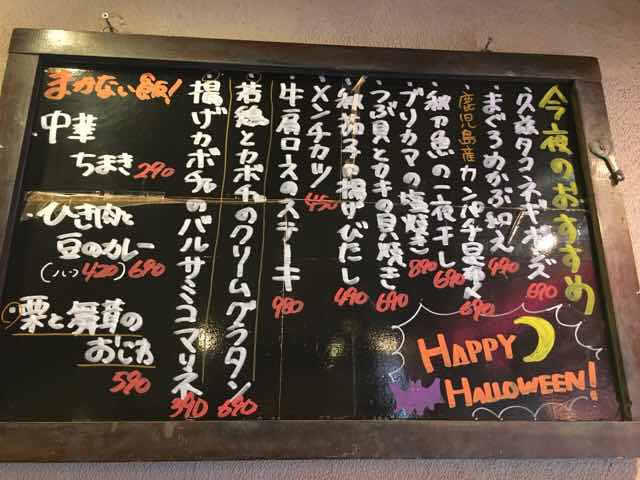 今夜のおすすめ
・久慈タコネギポンズ 690
・まぐろめかぶ和え 490
・鹿児島産カンパチ昆布〆 690
・秋刀魚の一夜干し 690
・ブリカマの塩焼き 890
・つぶ貝とカキの貝焼き 690
・秋茄子の揚げびたし 490
・メンチカツ 450
・牛肩ロースのステーキ 980
・若鶏とカボチャのクリームグラタン 690
・揚げカボチャのバルサミコマリネ 390
まかない飯!
・中華
ちまき 290
・ひき肉と
豆のカレー
(ハーフ 420) 690
・栗と舞茸の
おじや
590
HAPPY
HALLOWEEN!